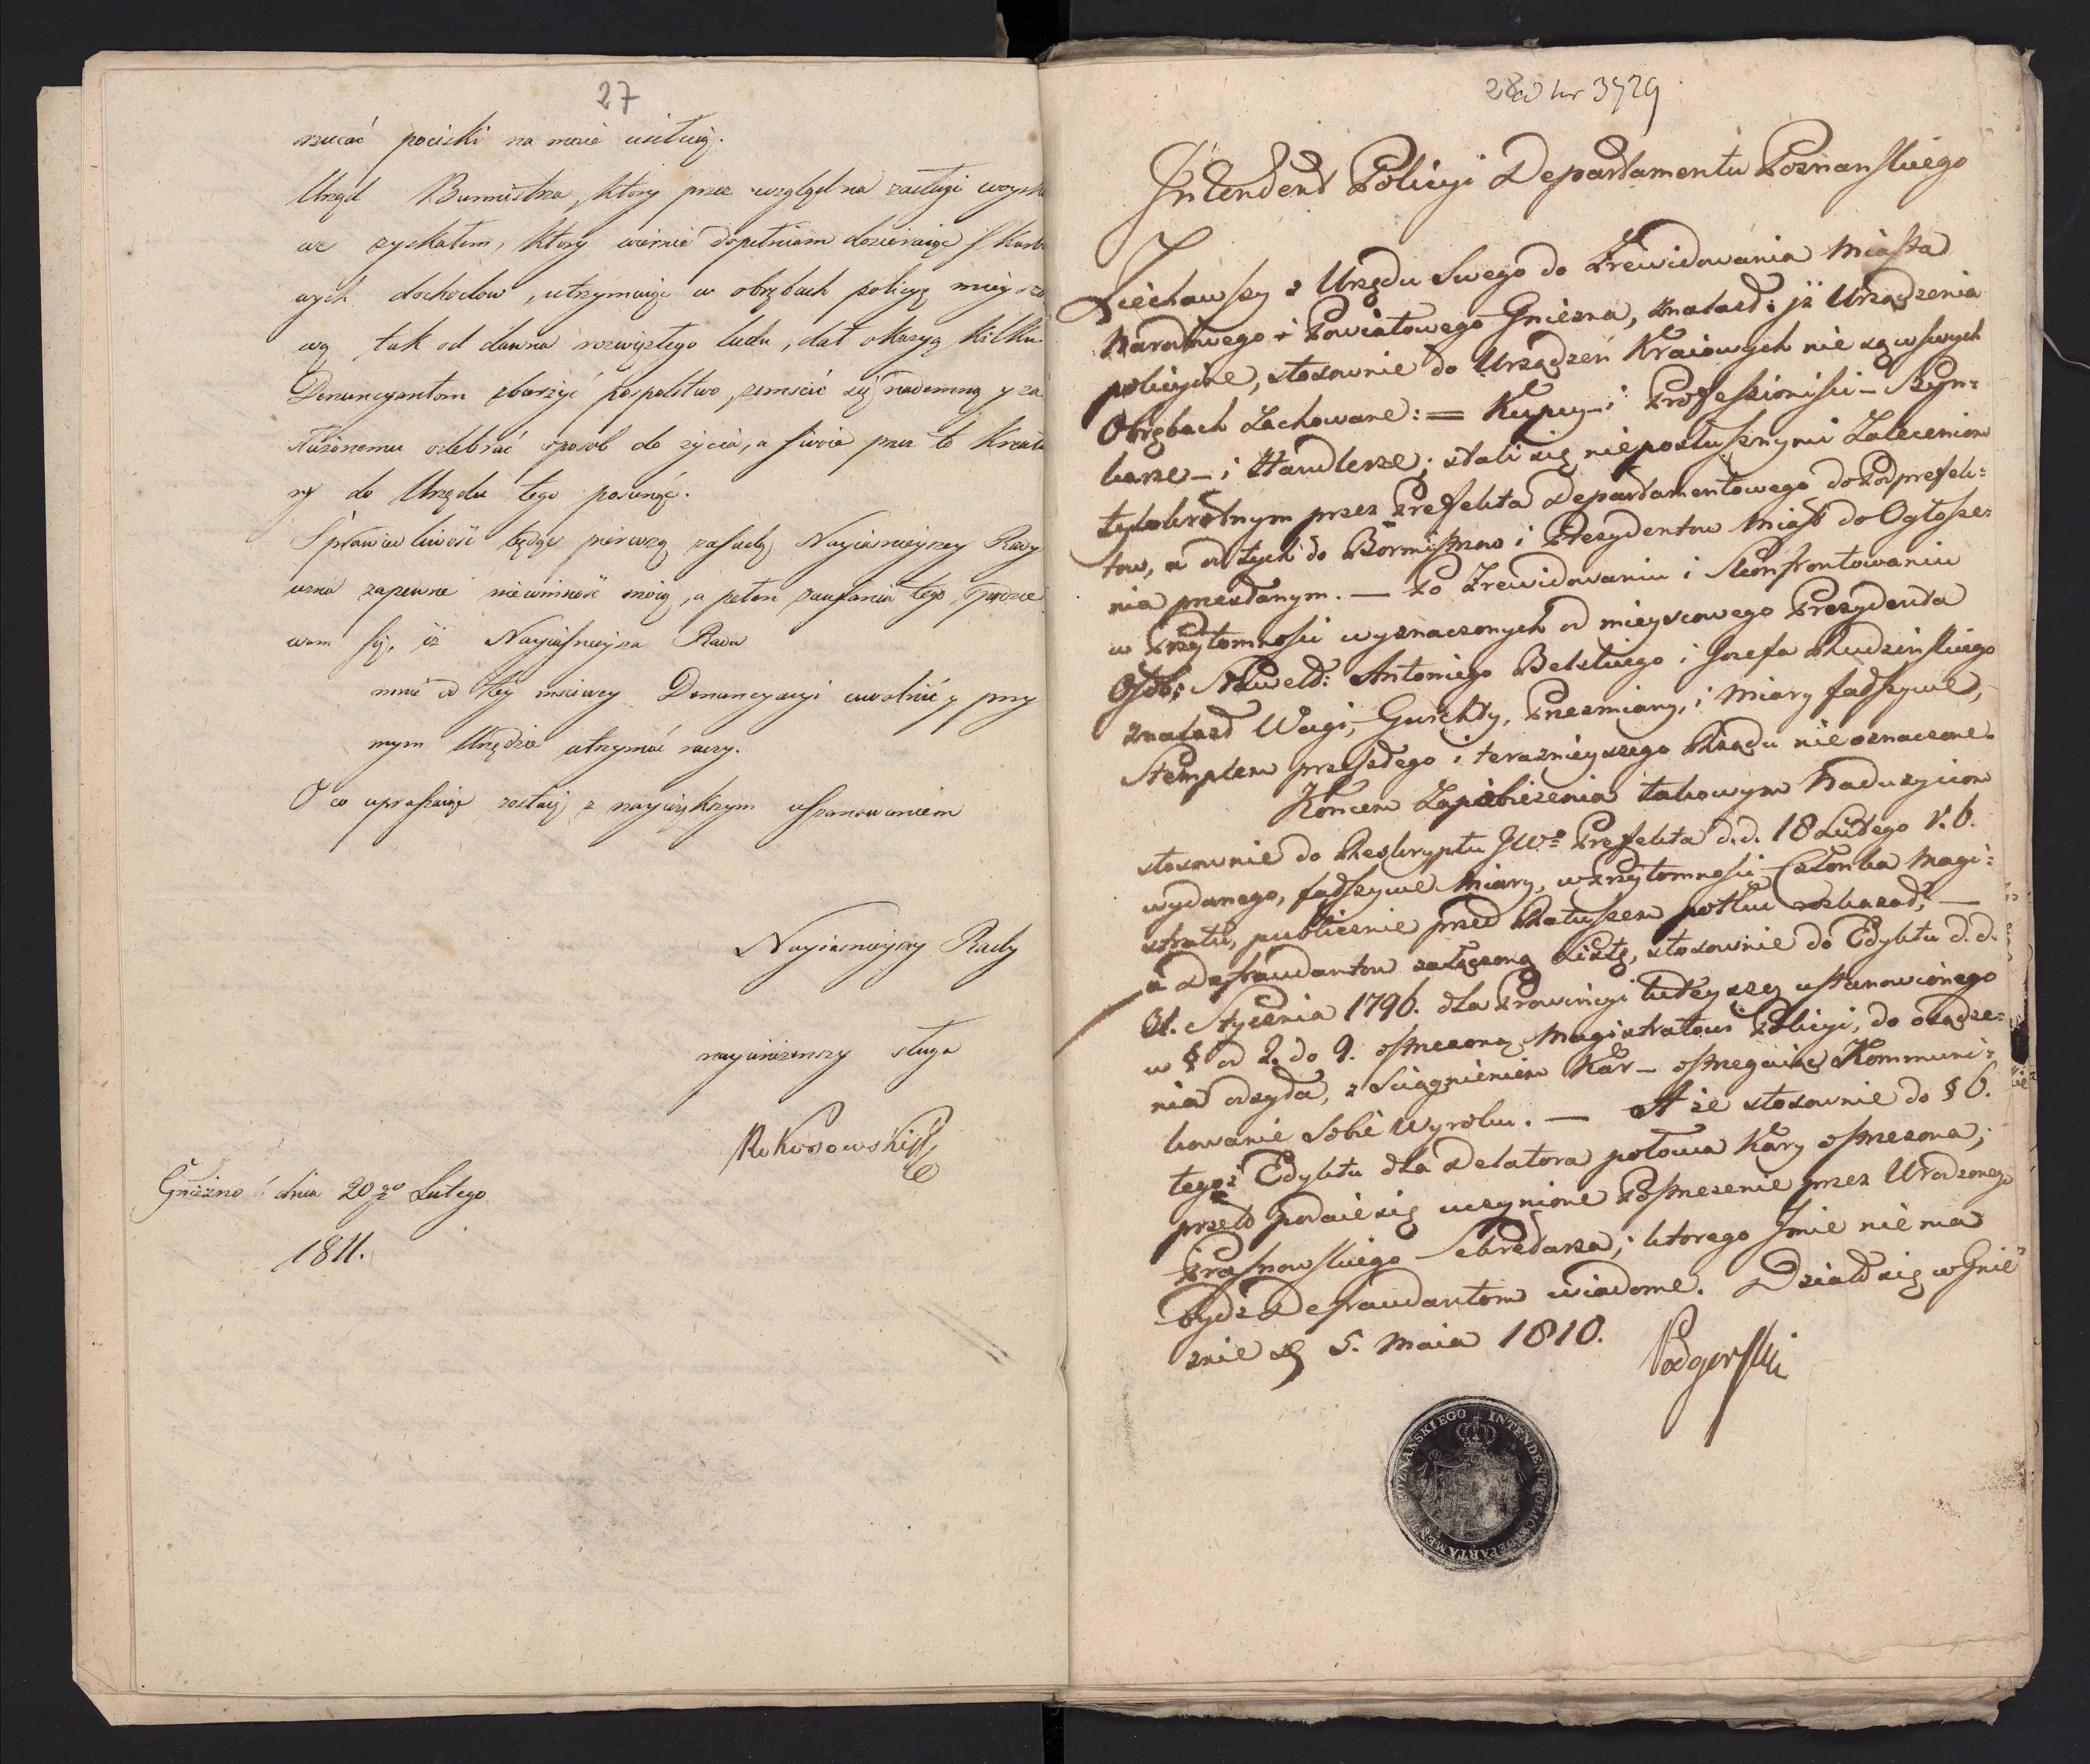 27
rzucać pociski na mnie usiłuią.
Urząd Burmistrza, ktory przez wzgląd na zasługi woysko
we zyskałem, ktory wiernie dopełniam dozieraiąc skarbo
wych dochodow, utrzymuiąc w obrębach policyą mieysco
wą tak od dawna rozwiązłego ludu, dał okazyą kilku
Denuncyantom zburzyć pospolstwo, zemścić się nademną y za
służonemu odebrać sposob do życia, a swoie przez to kreatu
ry do Urzędu tego posunąć.
Sprawiedliwość będąc pierwszą zasadą Nayiasnieyszey Rady
uzna zapewne niewinność moię, a pełen zaufania tego, spodzie
wam się, iż Nayiasnieysza Rada
mnie od tey mściwey Denuncyacyi uwolnić y przy
mym Urzędzie utrzymać raczy.
O co upraszaiąc zostaię z naywiększym uszanowaniem
Nayiasnieyszey Rady
nayuniżenszy sługa
Rokossowski
Gniezno dnia 20go Lutego
1811.
28 ad Nr 3729
Intendent Policyi Departamentu Poznanskiego
Ziechawszy z Urzędu Swego do Zrewidowania Miasta
Narodowego i Powiatowego Gniezna, znalazł: iż Urządzenia
policyine, stosownie do Urządzeń Kraiowych nie są w swych
Obrębach Zachowane: = Kupcy – i Professioniści – Szyn=
karze – i Handlerze; stali się nieposłusznymi Zaleceniom
tylokrotnym przez Prefekta Departamentowego do Podprefek=
tow, a od tych do Bormistrzow i Prezydentow Miast do Ogłosze=
nia przesłanym. — Po Zrewidowaniu i Skonfrontowaniu
w Przytomności wyznaczonych od mieyscowego Prezydenta
Osób; Sławetd: Antoniego Belskiego i Jozefa Rudzinskiego
znalazł Wagi, Gwichty, Przezmiany, i Miary fadszywe,
Stemplem przeszłego i teraznieyszego Rządu nie oznaczone.
Koncem Zapobieżenia takowym Naduzyciom
stosownie do Reskryptu JWo Prefekta d.d. 18 Lutego r. b.
wydanego, fadszywe Miary, w Przytomności Członka Magi=
stratu, publicznie przed Ratuszem potłuc rozkazał; —
a Defraudantow załączoną Listę, stosownie do Edyktu d. d.
31. Stycznia 1796. dla Prowincyi tuteyszey ustanowionego
w § od 2. do 9. ostrzeżoną Magistratowi Policyi, do osądze=
nia odsyła, z Sciągnieniem Kar – ostrzegaiąc Kommuni=
kowanie Sobie Wyroku. — A że stosownie do § 6.
tegoż Edyktu dla Delatora połowa Kary ostrzezona;
przeto podaie się uczynione Postrzeżenie przez Urodzonego
Prasnowskiego Sekretarza; ktorego Imie nie ma
bydź Defraudantom wiadome. Działo się w Gnie
znie d 5. Maia 1810.
Podgorski
INTENDENT POLICYI DEPARTAMENTU POZNANSKIEGO